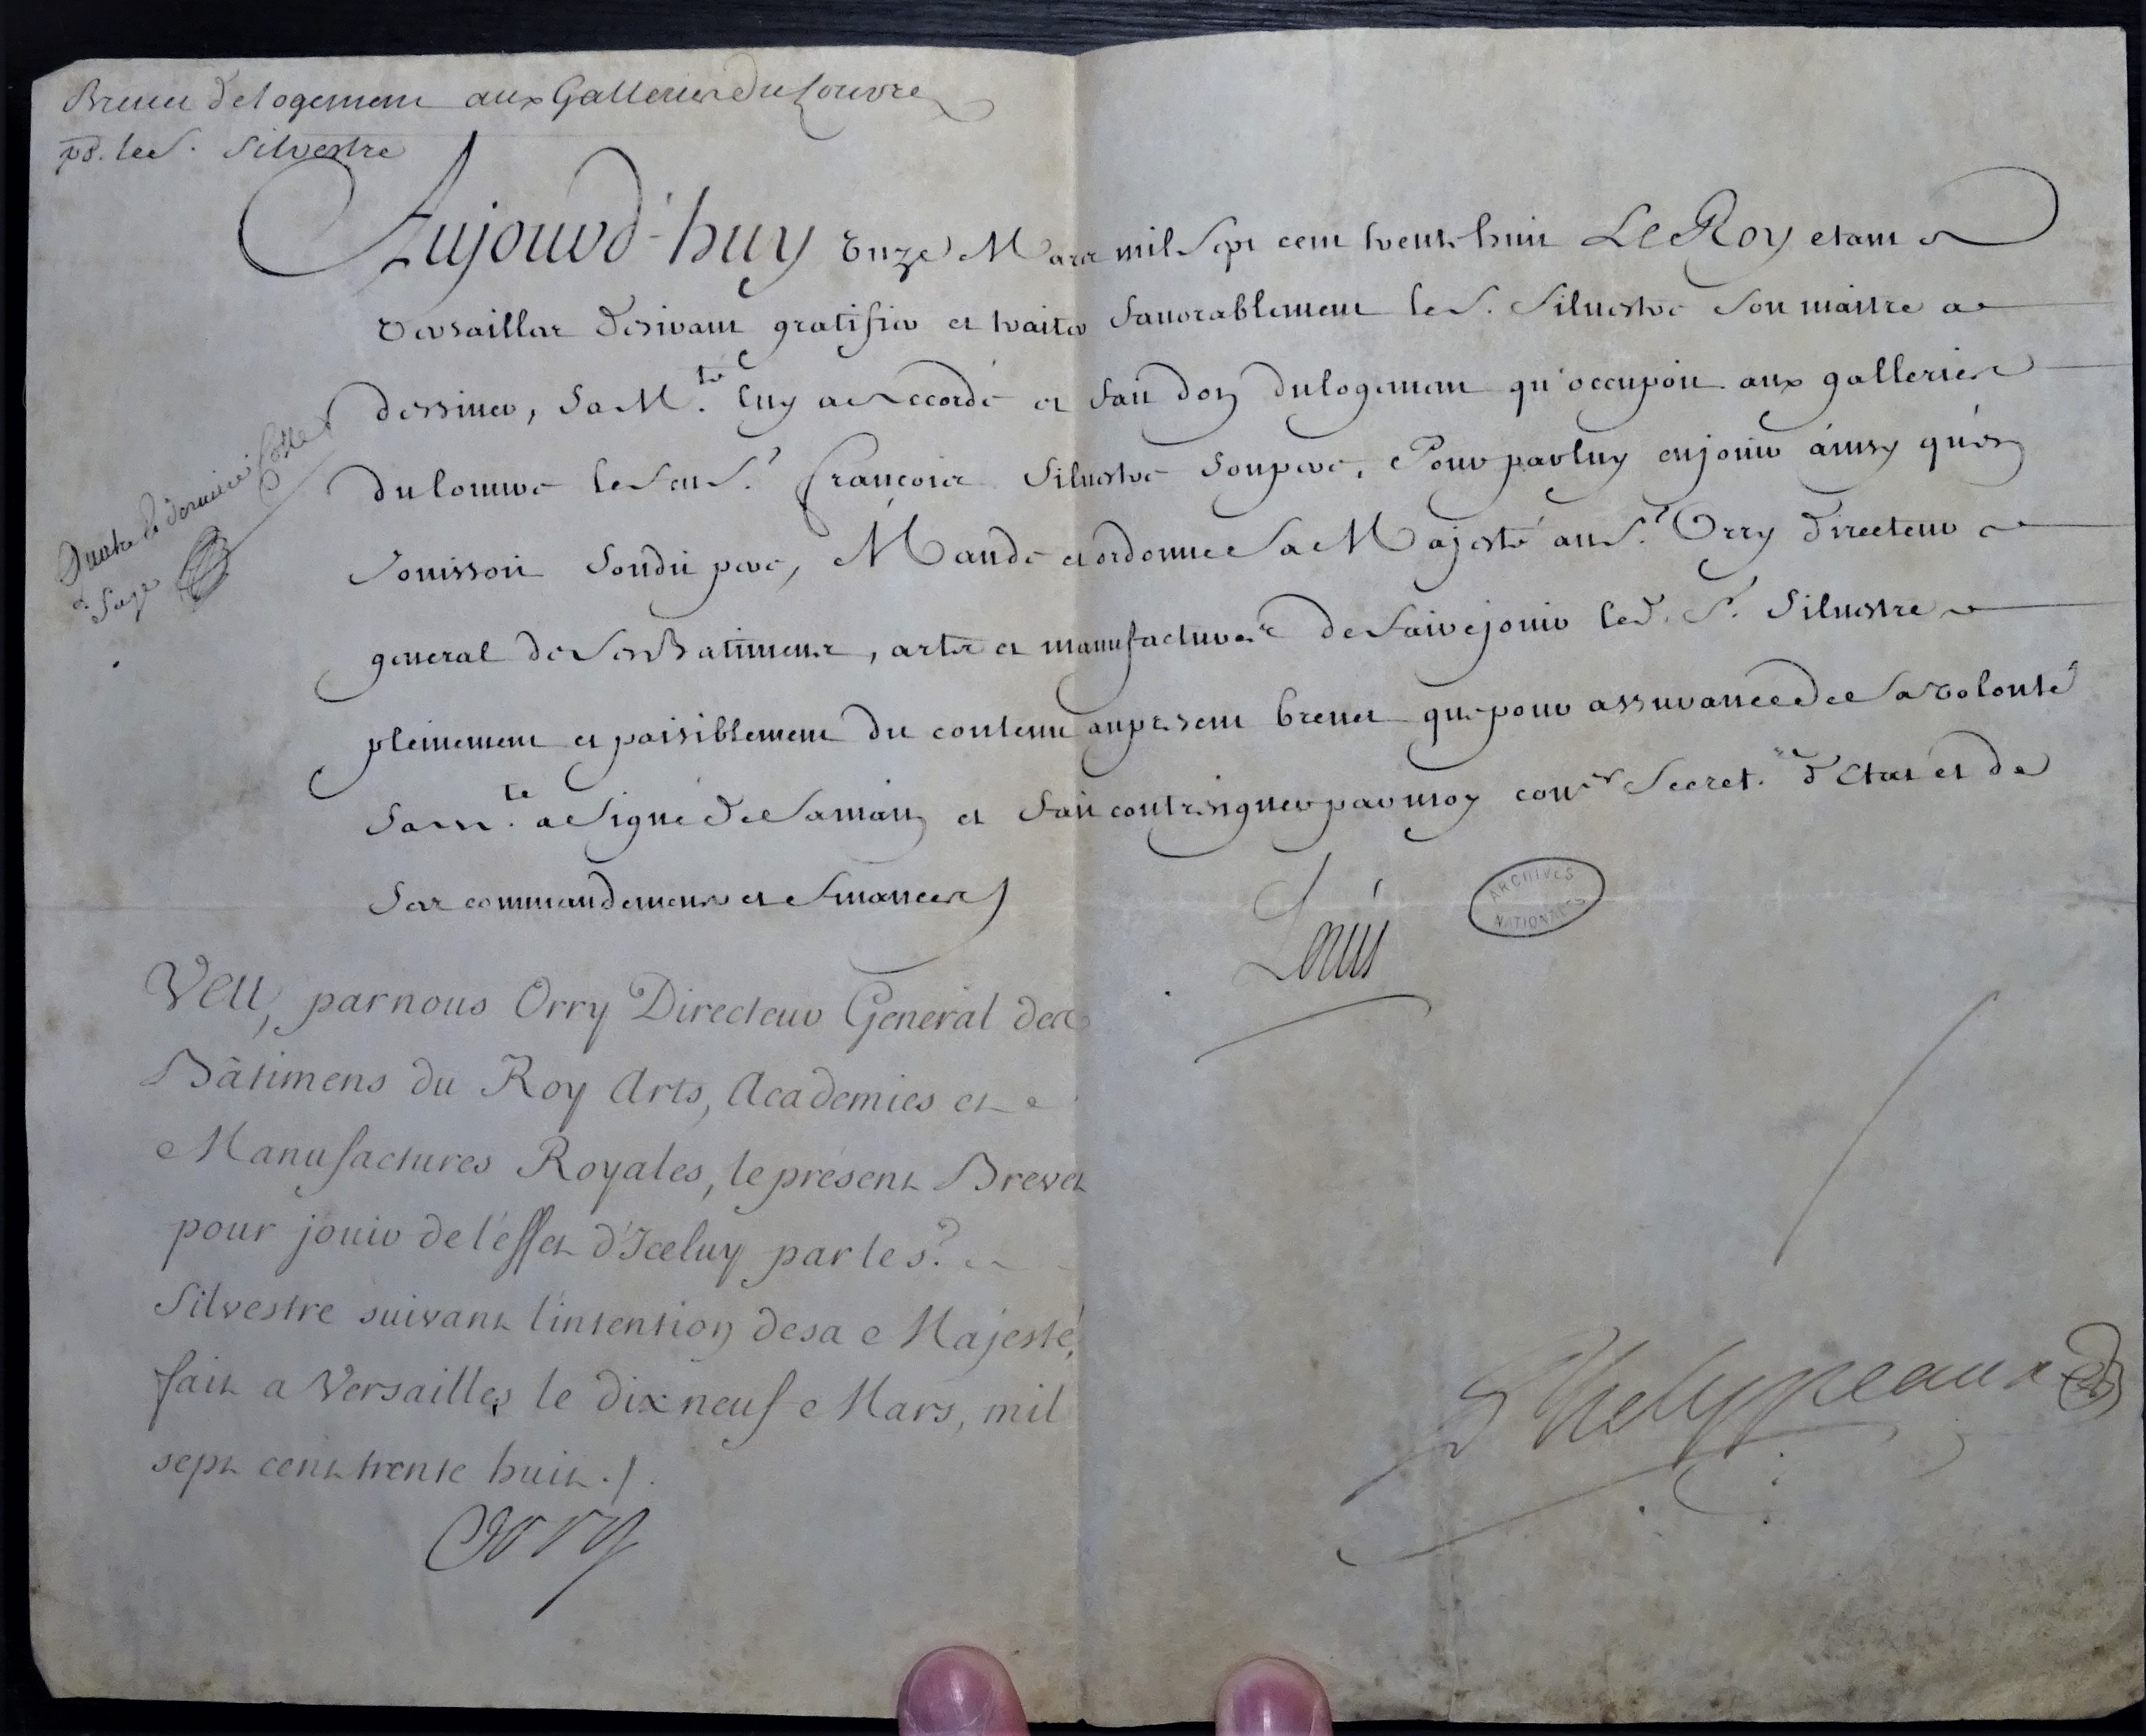 Brevet de logement aux Galleries du Louvre
po. le S. Silvestre
Aujourd'huy Onze Mars mil sept cent trente huit Le Roy etant a
Versailles desirant gratifier et traiter favorablement le S. Silvestre son maitre a
dessiner, sa M.té luy a accordé et fait don du logement qu'occupoit aux galleries
du louvre le feu S.r François Silvestre son pere, Pour par luy en jouir ainsy qu'en
jouissoit sondit pere, Mande et ordonne sa Majesté au S.r Orry directeur
general de ses Batimens, arts et manufactures de faire jouir led. S.r Silvestre
pleinement et paisiblement du contenu au present brevet que pour assurance de sa volonté
sa M.té a signé de sa main et fait contresigner par moy con.er Secret.re d'Etat et de
ses commandemens et finances
Quatre dernier
Louis
ARCHIVES NATIONALES
Veu, par nous Orry Directeur General des
Bâtimens du Roy Arts, Academies et
Manufactures Royales, le présent Brevet
pour jouir de l'éffet d'Iceluy par le S.r
Silvestre suivant l'intention de sa Majesté,
fait a Versailles le dix neuf Mars, mil
sept cent trente huit ./.
Orry
Phelypeaux